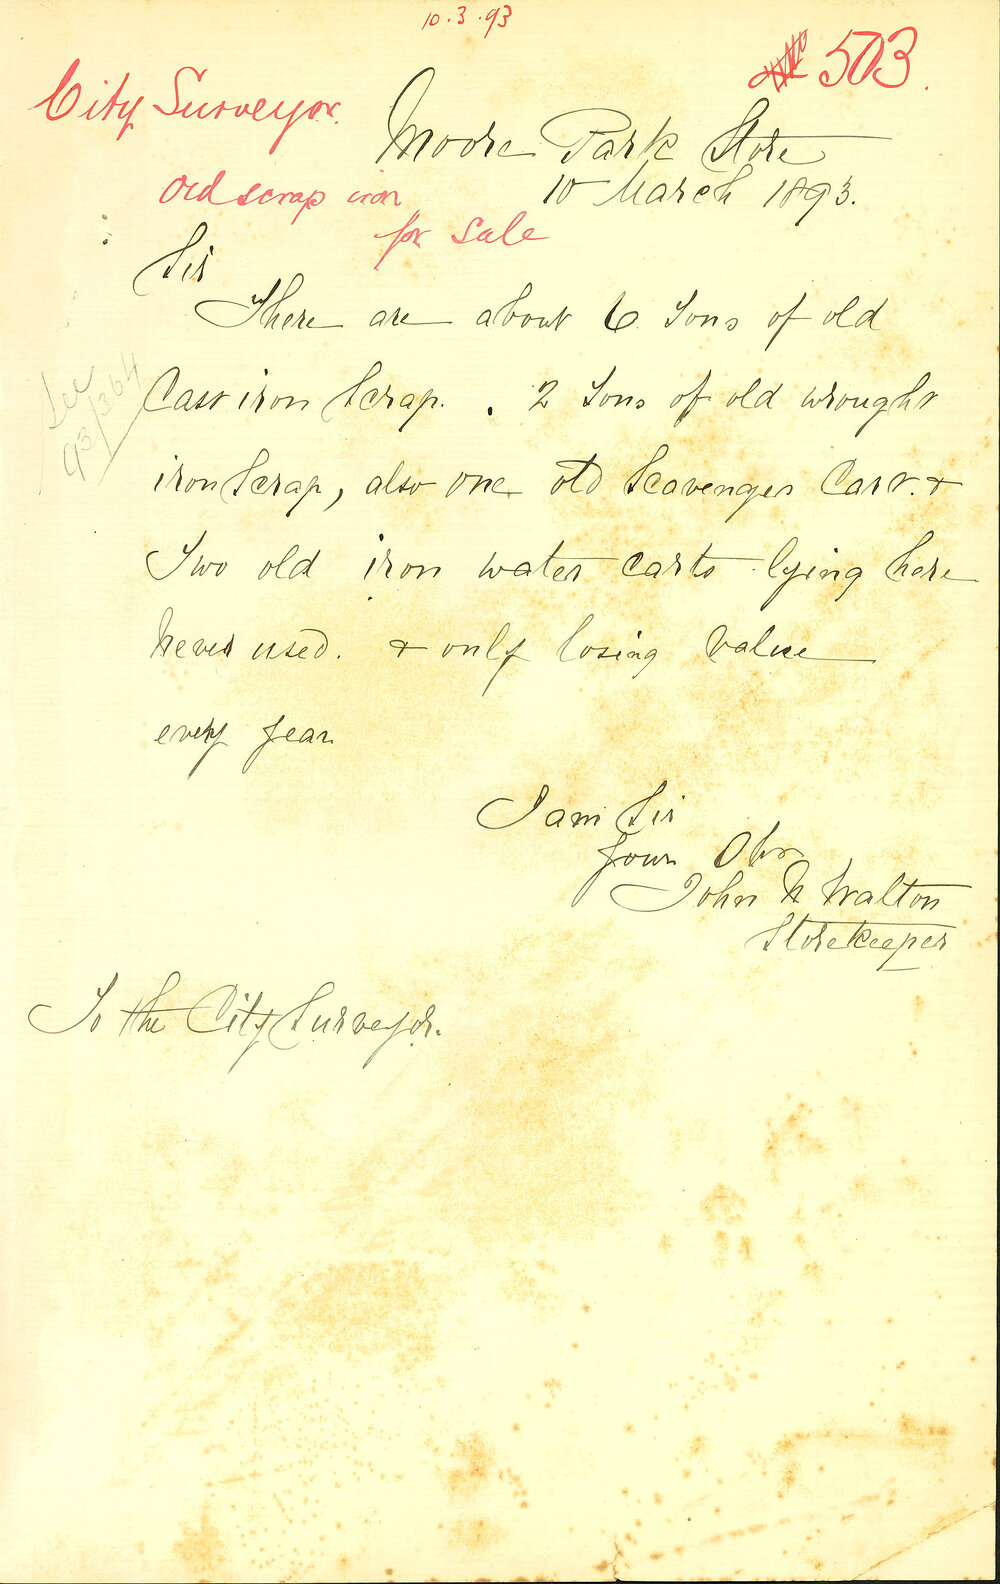 10.3.93
503.
City Surveyor.
Moore Park Store
Old scrap iron
10 March 1893.
for sale
Sir
There are about 6 Tons of old
See
93/364
Cast iron Scrap. . 2 Tons of old wrought
iron Scrap, also one old Scavenger Cart. &
Two old iron water carts lying here
never used. & only losing value
every year
I am Sir
your Obt
John N Walton
Storekeeper
To the City Surveyor.